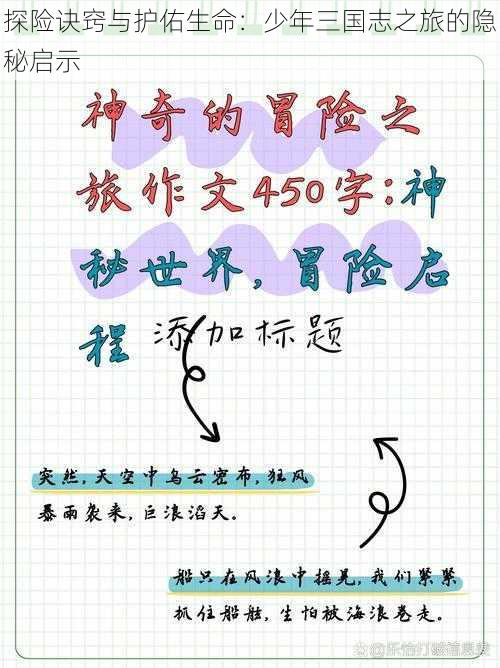 探险诀窍与护佑生命：少年三国志之旅的隐
秘启示
神奇的冒险之
旅作文450字:神
秘世界,冒险启
程 添加标题
突然,天空中乌云密布,狂风
暴雨袭来,巨浪滔天。
船只在风浪中摇晃,我们紧紧
抓住船舷,生怕被海浪卷走。